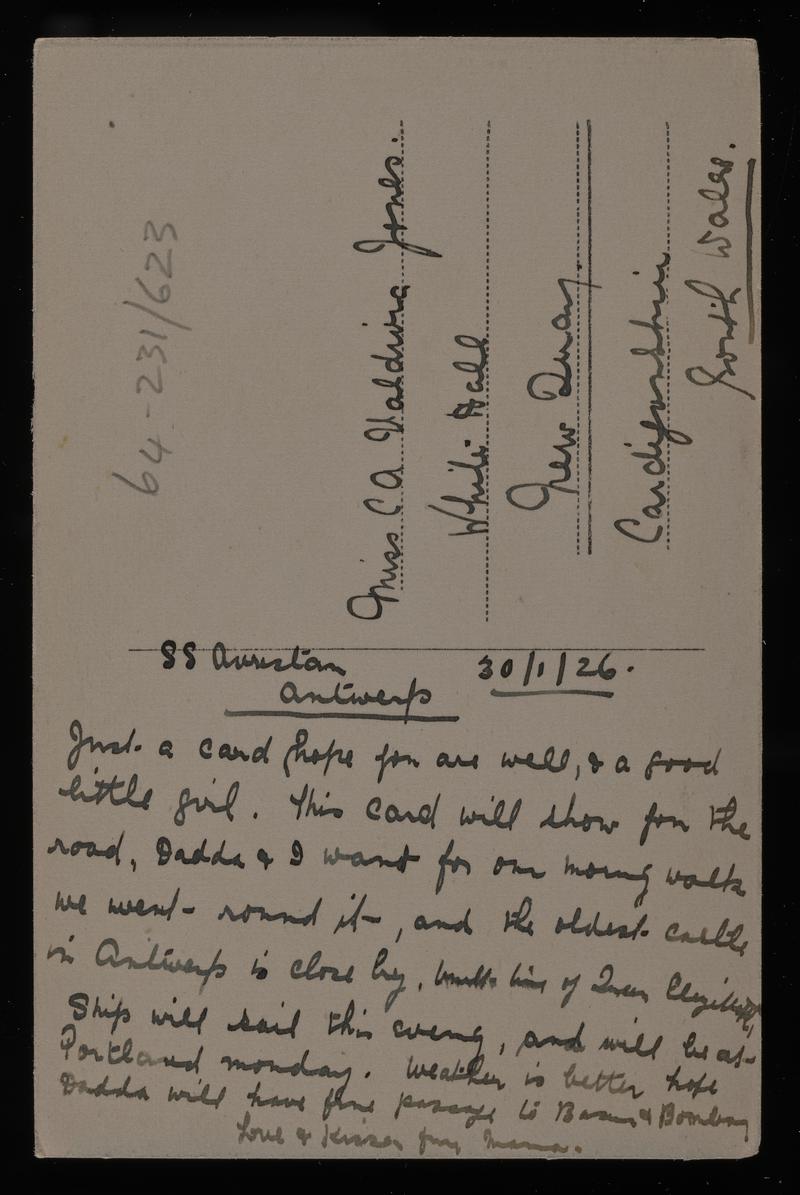 64-231/623
Miss C A Valdivia Jones.
White Hall
New Quay.
Cardiganshire
South Wales.
SS Avristan 30/1/26.
Antwerp
Just a card hope you are well, & a good
little girl. This card will show you the
road, Dadda & I went for our morng walk
we went round it, and the oldest castle
in Antwerp is close by, built time of Queen Elizabeth,
Ship will sail this eveng, and will be at
Portland monday. Weather is better hope
Dadda will have fine passage to & Bombay
Love & Kisses from Mama.